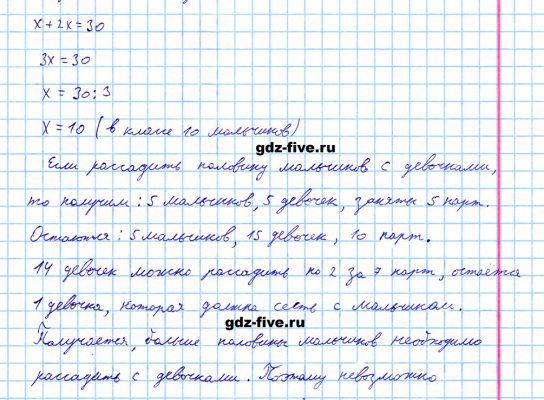 x + 2x = 30
3x = 30
x = 30 : 3
x = 10 (в классе 10 мальчиков)
gdz-five.ru
Если рассадить половину мальчиков с девочками,
то получим: 5 мальчиков, 5 девочек, заняты 5 парт.
Остаются: 5 мальчиков, 15 девочек, 10 парт.
14 девочек можно рассадить по 2 за 7 парт, остается
1 девочка, которая должна сесть с мальчиком.
gdz-five.ru
Получается, больше половины мальчиков необходимо
рассадить с девочками. Поэтому невозможно